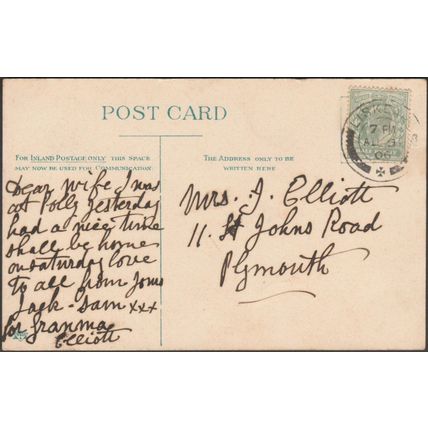 POST CARD
FOR INLAND POSTAGE ONLY THIS SPACE
MAY NOW BE USED FOR COMMUNICATION
THE ADDRESS ONLY TO BE
WRITTEN HERE
Dear wife I was
at Polly yesterday
had a nice time
shall be home
on saturday love
to all from
Jack - Sam xxx
for granma
Elliott
Mrs. J. Elliott
11. St Johns Road
Plymouth
7 PM